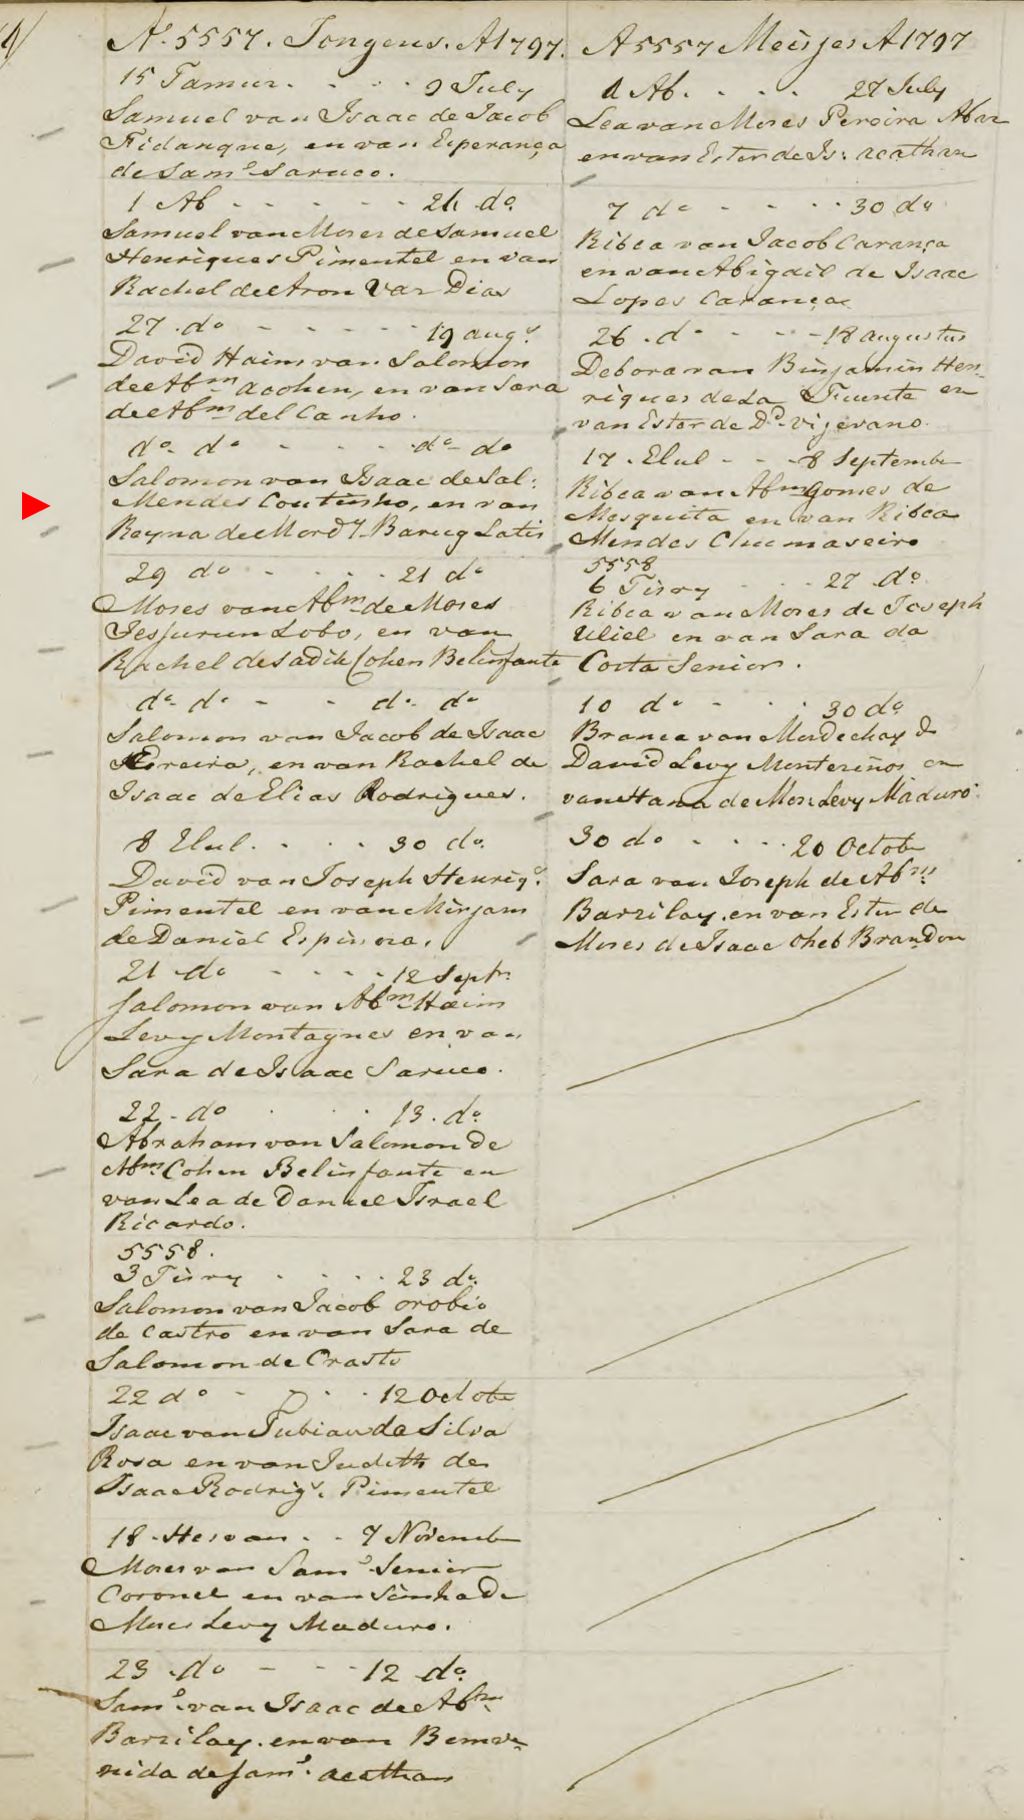 N. 5557. Jongens. A 1797.
15 Tamus. . . . . 9 July
Samuel van Isaac de Jacob
Fidanque, en van Esperança
de Sam.l Saruco.
1 Ab - - - - - 24 do.
Samuel van Moses de Samuel
Henriques Pimentel en van
Rachel de Aron Vaz Dias
27. do - - - - - 19 aug.s
David Haim van Salomon
de Abm acohen, en van Sara
de Abm del Canho.
do. do - - - - do - do
Salomon van Isaac de Sal:
Mendes Coutinho, en van
Reyna de Mord.y Barug Latis
29 do - - - - 21 do
Moses van Abm de Moses
Jesjurun Lobo, en van
Rachel de Sadik Cohen Belinfante
do. do. - - do. do
Salomon van Jacob de Isaac
Pereira, en van Rachel de
Isaac de Elias Rodrigues.
8 Elul. . . . . 30 do.
David van Joseph Henriq.s
Pimentel en van Mirjam
de Daniel Espinoza.
21 do - - - - 12 Sept.
Salomon van Abm Haim
Levy Montagnes en van
Sara de Isaac Saruco.
22 - do . . . 13. do.
Abraham van Salomon de
Abm Cohen Belinfante en
van Lea de Daniel Israel
Ricardo.
5558.
3 Tisry . . . . 23 do.
Salomon van Jacob orobio
de Castro en van Sara de
Salomon de Crasto
22 do - . . 12 Octobe
Isaac van Tubiau da Silva
Rosa en van Judith de
Isaac Rodrig.s Pimentel
18. Hesvan . . 7 Novemb
Moses van Sam.l Senior
Coronel en van Simha de
Moses Levy Maduro.
23. do - - - 12 do.
Sam.l van Isaac de Abm
Barzilay. en van Bemve-
nida de Sam.l acathan
A 5557 Meisjes A 1797
1 Ab. . . . . 27 July
Lea van Moses Pereira
en van Ester de Is: acathan
7 do - - - . 30 do
Ribca van Jacob Carança
en van Abigail de Isaac
Lopes Carança
26. do - - - 18 augustus
Debora van Binjamin Hen-
riques de La Fuente en
van Ester de Dd. vijevano.
17. Elul - - - 8 Septembe
Ribca van Abm Gomes de
Mesquita en van Ribca
Mendes Chumaseiro
5558
6 Tisry . . . 27 do.
Ribca van Moses de Joseph
Uliel en van Sara da
Costa Senior.
10 do - . . 30 do.
Branca van Mordechay de
David Levy Monterinos en
van Hana de Mos: Levy Maduro.
30 do - . . . 20 Octobe
Sara van Joseph de Abm
Barzilay. en van Ester de
Moses de Isaac Oheb Brandon